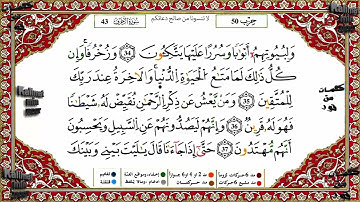 لا تنسونا من صالح دعائكم
43 سورة الزخرف
حزب 50
وَلِبُيُوتِهِمُۥٓ أَبْوَٰبًا وَسُرُرًا عَلَيْهَا يَتَّكِـُٔونَ 34 وَزُخْرُفًا وَإِن
كُلُّ ذَٰلِكَ لَمَا مَتَٰعُ الْحَيَوٰةِ الدُّنْيَا وَالَاخِرَةُ عِندَ رَبِّكَ
لِلْمُتَّقِينَ 35 وَمَنْ يَّعْشُ عَن ذِكْرِ الرَّحْمَٰنِ نُقَيِّضْ لَهُۥ شَيْطَٰنًا
فَهُوَ لَهُۥ قَرِينٌ 36 وَإِنَّهُمْ لَيَصُدُّونَهُمْ عَنِ السَّبِيلِ وَيَحْسِبُونَ
أَنَّهُم مُّهْتَدُونَ 37 حَتَّىٰٓ إِذَا جَآءَٰنَا قَالَ يَٰلَيْتَ بَيْنِي وَبَيْنَكَ
كلمات من نور